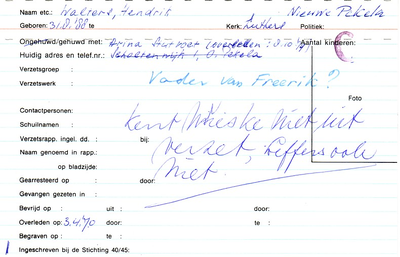 Naam etc.: Walters, Hendrik Nieuwe Pekela
Geboren: 31.8.'88 te Kerk: Luthers Politiek:
Ongehuwd/gehuwd met: (overleden: Aantal kinderen:
Huidig adres en telef.nr.:
Verzetsgroep :
Verzetswerk : Vader van Freerik?
Foto
Contactpersonen:
Schuilnaam : kent Wieske niet uit
Verzetsrapp. ingel. dd. : bij: verzet, Leffers ook
Naam genoemd in rapp.: niet.
op bladzijde:
Gearresteerd op : door:
Gevangen gezeten in :
Bevrijd op : uit : door:
Overleden op : 3.4.70 door: te :
Begraven op : te :
Ingeschreven bij de Stichting 40/45: